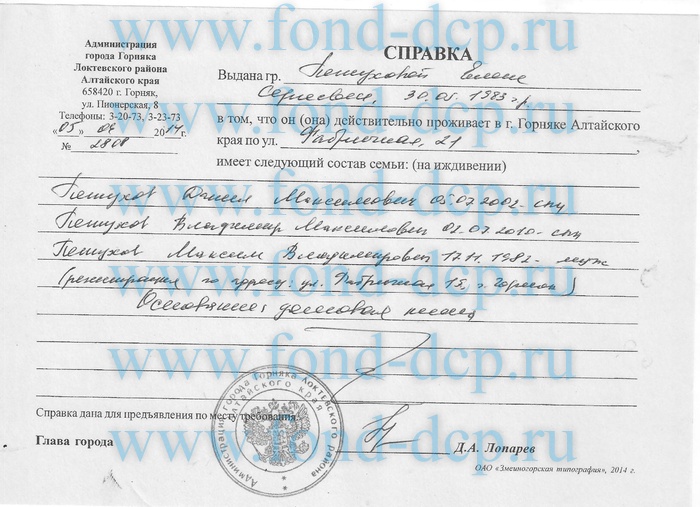 www.fond-dcp.ru
Администрация
города Горняка
Локтевского района
Алтайского края
658420 г. Горняк,
ул. Пионерская, 8
Телефоны: 3-20-73, 3-23-73
«05» 06 2014 г.
№ 2808
СПРАВКА
Выдана гр. Петуховой Елене
Сергеевне, 30.05.1983 г.р.
в том, что он (она) действительно проживает в г. Горняке Алтайского
края по ул. Фабричная, 21
имеет следующий состав семьи: (на иждивении)
www.fond-dcp.ru
Петухов Данил Максимович 05.07.2002 - сын
Петухов Владимир Максимович 02.07.2010 - сын
Петухов Максим Владимирович 17.11.1982 - муж
(регистрация по адресу: ул. Фабричная 15, г. Горняк)
Основание: домовая книга
www.fond-dcp.ru
Справка дана для предъявления по месту требования.
www.fond-dcp.ru
Глава города
Д.А. Лопарев
Администрация города Горняка Локтевского района
Алтайского края
ОАО «Змеиногорская типография», 2014 г.